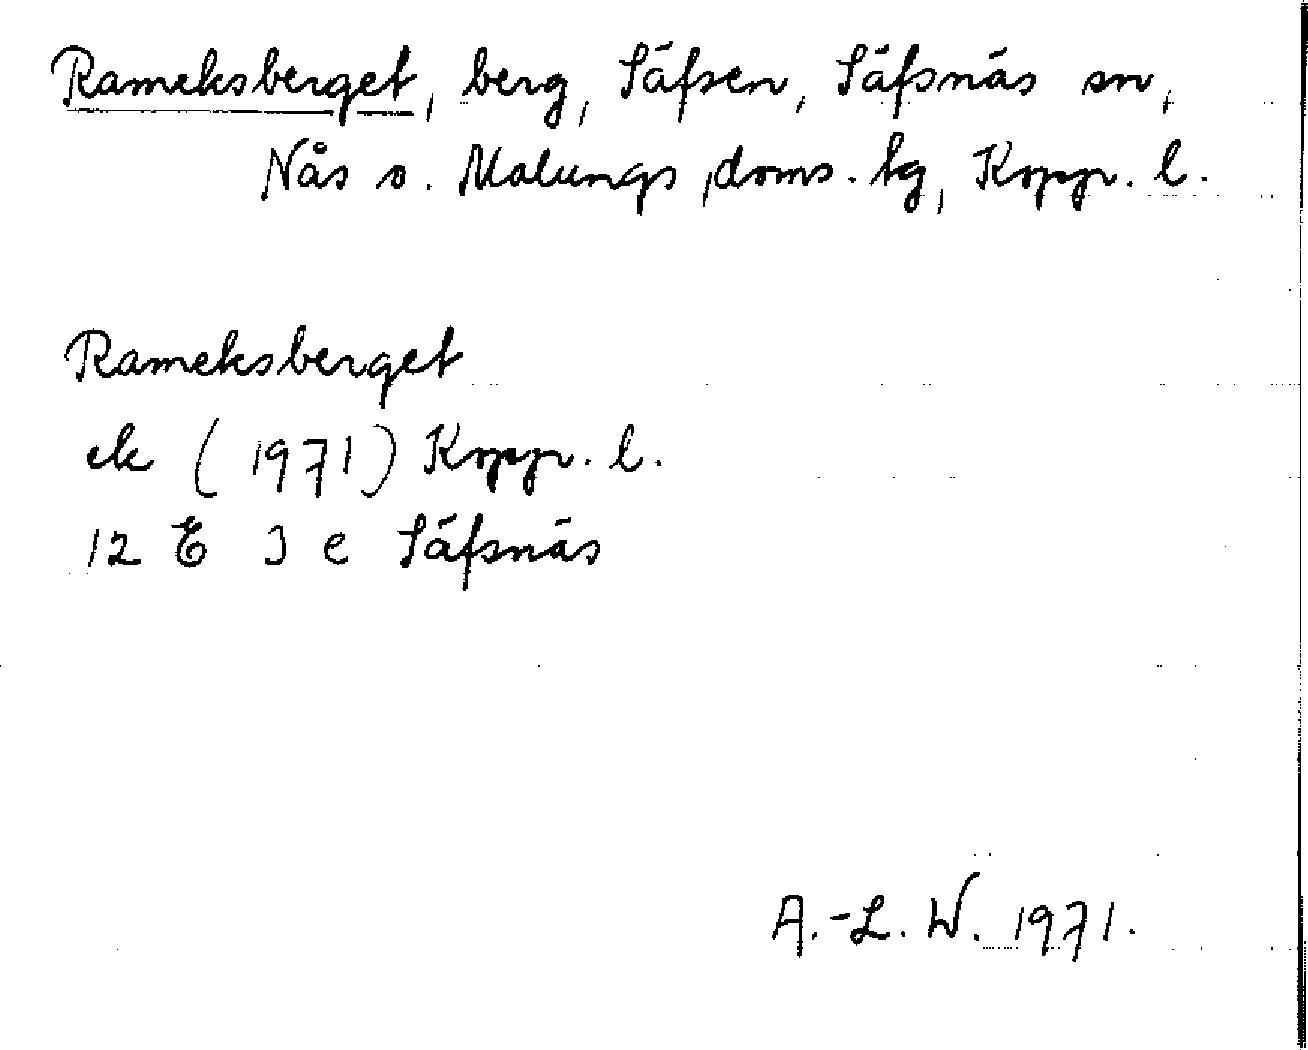 Rameksberget, berg, Säfsen, Säfsnäs sn,
Nås o. Malungs doms. tg, Koppr. l.
Rameksberget
ek (1971) Koppr. l.
12 E 3 e Säfsnäs
A.-L. W. 1971.